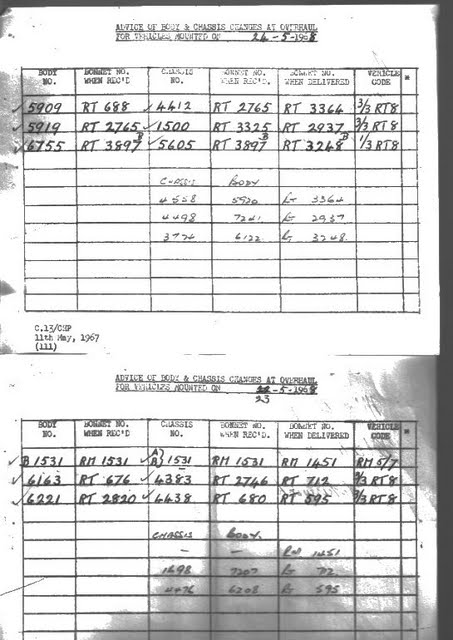 ADVICE OF BODY & CHASSIS CHANGES AT OVERHAUL
FOR VEHICLES MOUNTED ON 24-5-1968
BODY NO. BONNET NO. WHEN REC'D CHASSIS NO. BONNET NO. WHEN REC'D. BONNET NO. WHEN DELIVERED VEHICLE CODE *
✓5909 RT 688 ✓4412 RT 2765 RT 3364 3/3 RT8
✓5919 RT 2765 ✓1500 RT 3325 RT 2937 3/3 RT8
✓6755 RT 3897B ✓5605 RT 3897B RT 3248B 1/3 RT8
CHASSIS BODY
4558 5920 Rt 3364
4498 7241 Rt 2937
3774 6122 Rt 3248
C.13/CHP
11th May, 1967
(111)
ADVICE OF BODY & CHASSIS CHANGES AT OVERHAUL
FOR VEHICLES MOUNTED ON -5-1968
23
BODY NO. BONNET NO. WHEN REC'D CHASSIS NO. BONNET NO. WHEN REC'D. BONNET NO. WHEN DELIVERED VEHICLE CODE *
✓B 1531 RM 1531 ✓A} B} 1531 RM 1531 RM 1451 RM 5/7
✓6163 RT 676 ✓4383 RT 2746 RT 712 3/3 RT8
✓6221 RT 2820 ✓4438 RT 680 RT 595 3/3 RT8
CHASSIS BODY.
— — RM 1451
1698 7207 Rt 712
4476 6208 Rt 595